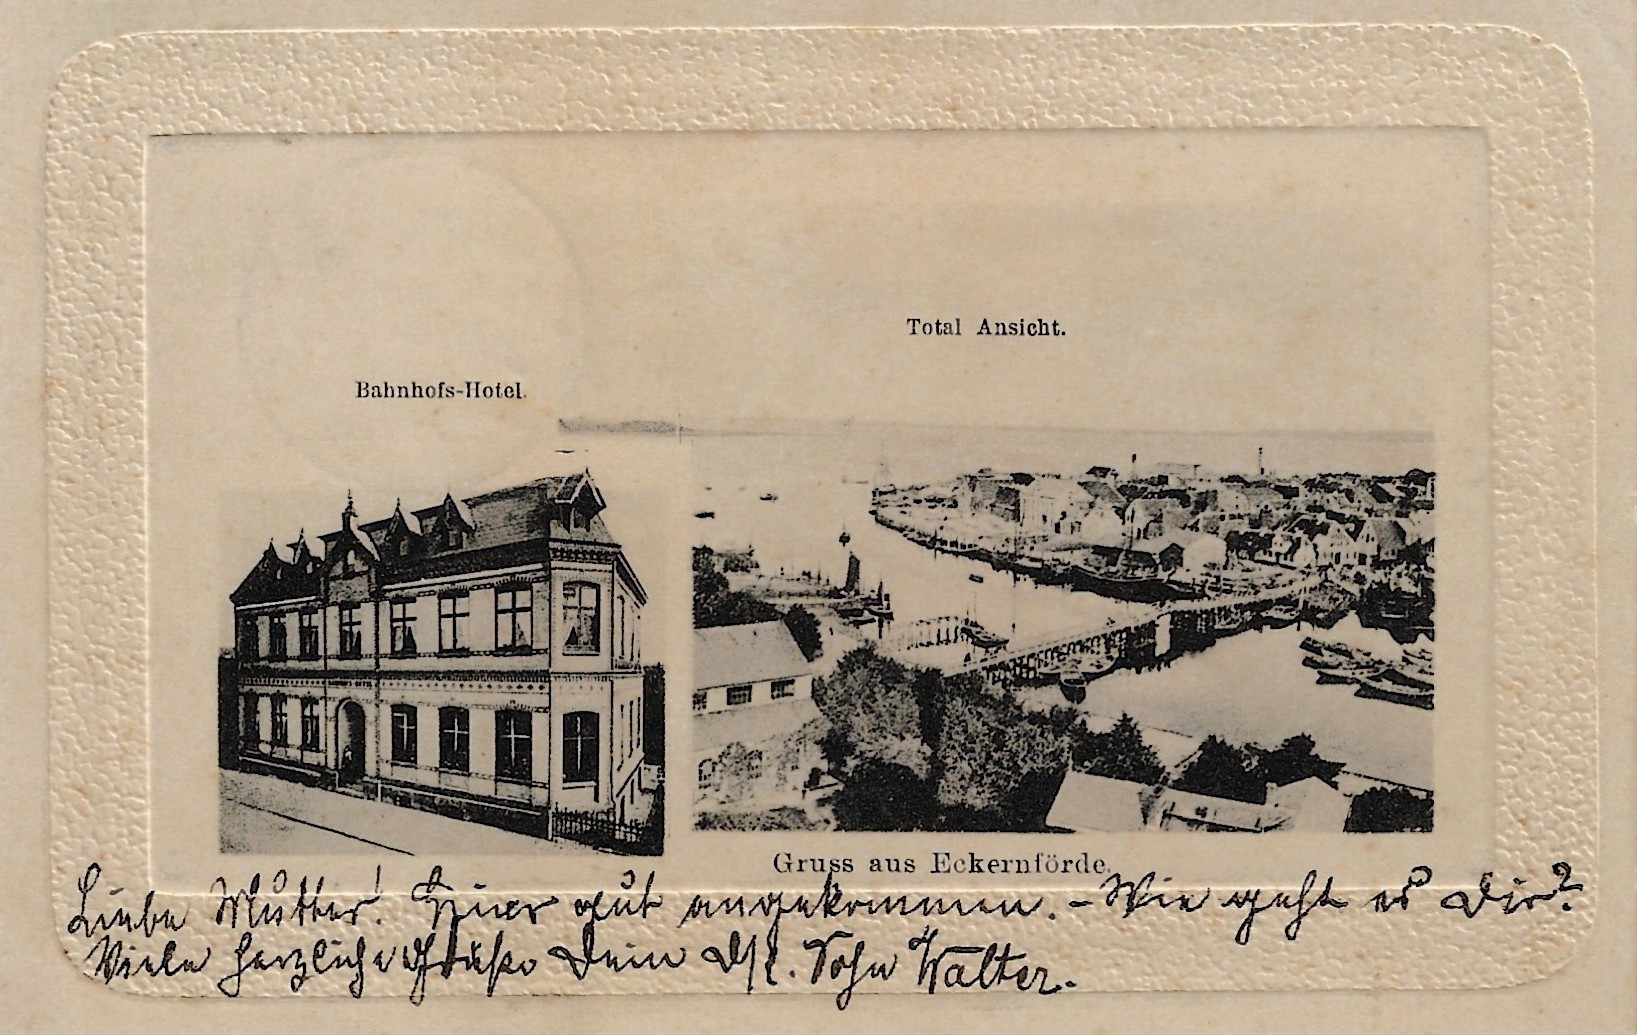 Total Ansicht.
Bahnhofs-Hotel.
Gruss aus Eckernförde.
Liebe Mutter! Hier gut angekommen. – Wie geht es Dir?
Viele herzliche Grüße Dein Sohn Walter.